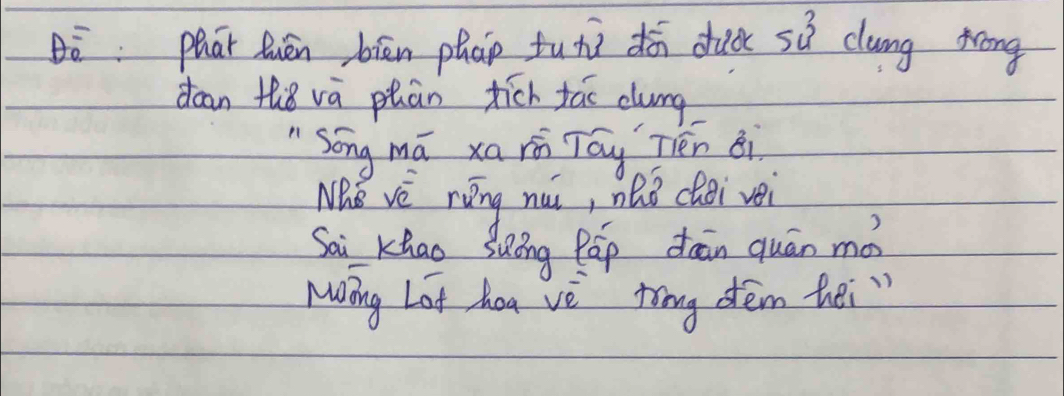 Đề : phát hiện biện pháp tu từ đối được sử dụng trong
đoạn thơ và phân tích tác dụng
"Sông mã xa rồi Tây Tiến ơi.
Nhớ về rừng núi, nhớ chơi vơi
Sài Khao sương lấp đoàn quân mỏi
Mường Lát hoa về trong đêm hơi"